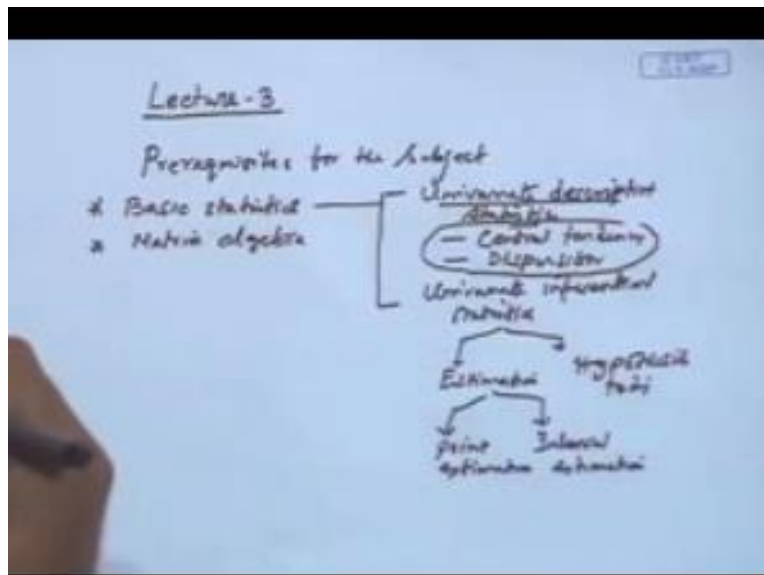 Lecture-3
Prerequisites for the Subject
* Basic statistics
* Matrix algebra
Univariate descriptive
statistics
— Central tendency
— Dispersion
Univariate inferential
statistics
Estimation
Hypothesis
test
Point
estimation
Interval
estimation